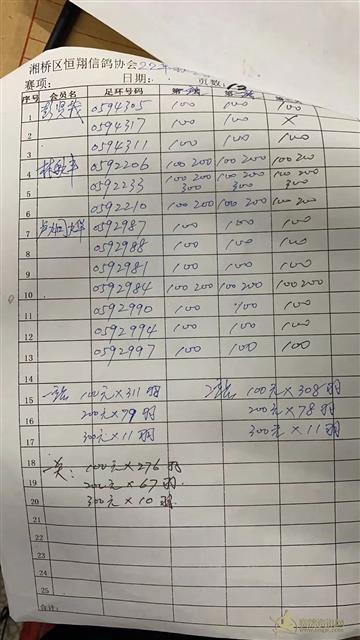 湘桥区恒翔信鸽协会22年
赛项: 日期: 页数: 13
序号 会员名 足环号码 第一次 第二次
1 0594305 100 100 100
2 0594317 100 100 X
3 0594311 100 100 100
4 0592206 100 200 100 200 100 200
5 0592233 100 200 300 100 200 300 100 200 300
6 0592210 100 200 100 200 100 200
7 0592987 100 100 100
8 0592988 100 100 100
9 0592981 100 100 100
10 0592984 100 200 100 200 100 200
11 0592990 100 100 100
12 0592994 100 100 100
13 0592997 100 100 100
14
15 100元×311羽 100元×308羽
16 200元×79羽 200元×78羽
17 300元×11羽 300元×11羽
18 100元×276羽
19 200元×67羽
20 300元×10羽
21
22
23
24
25
合计: